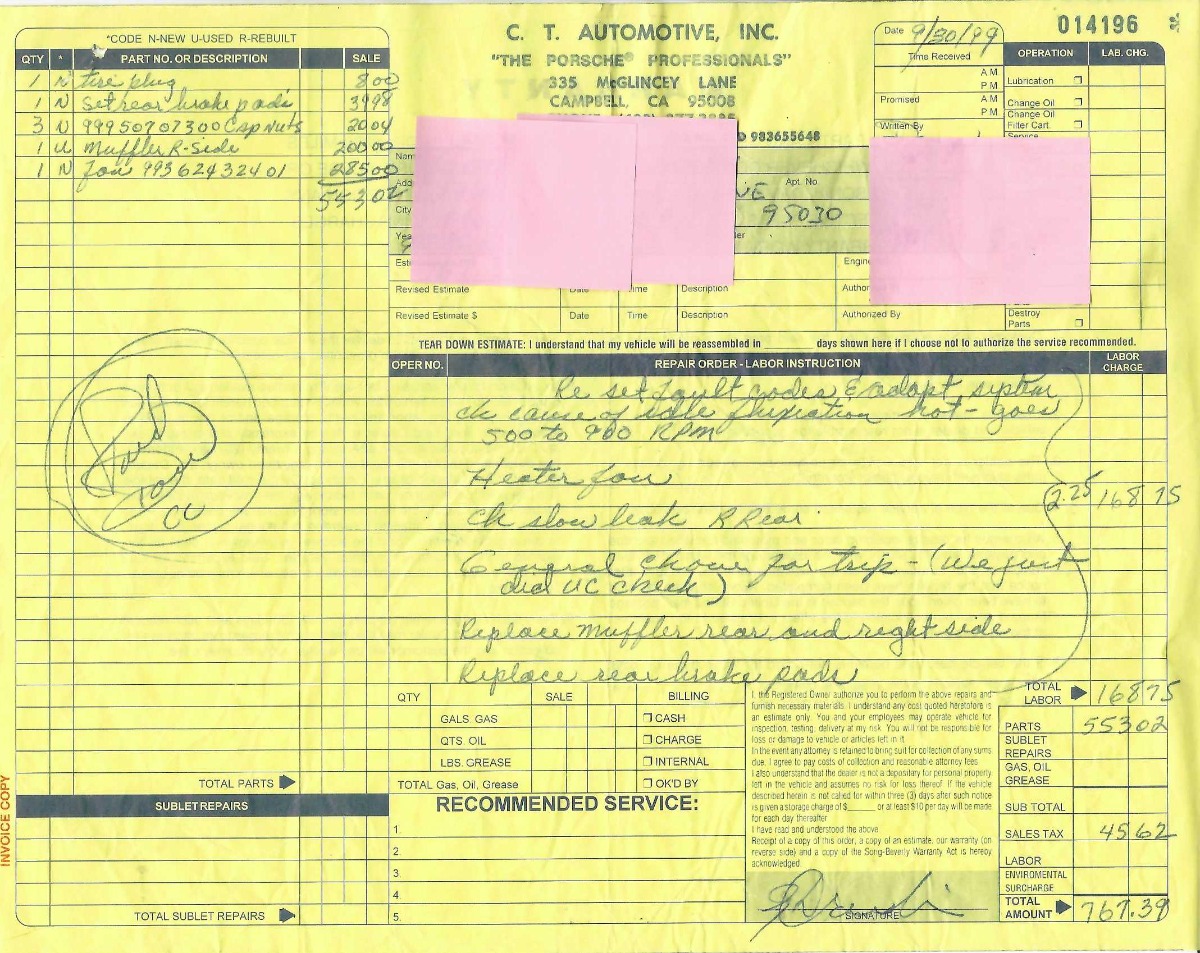 *CODE N-NEW U-USED R-REBUILT
QTY * PART NO. OR DESCRIPTION SALE
1 N tire plug 8 00
1 N set rear brake pads 39 98
3 N 999 507 073 00 Cap Nuts 20 04
1 U Muffler R-Side 200 00
1 N fan 993 624 324 01 285 00
553 02
Paid
CC
TOTAL PARTS
SUBLET REPAIRS
TOTAL SUBLET REPAIRS
INVOICE COPY
C. T. AUTOMOTIVE, INC.
"THE PORSCHE® PROFESSIONALS"
335 McGLINCEY LANE
CAMPBELL, CA 95008
983655648
Date 9/30/99
014196
Time Received
AM
PM
Promised AM
PM
Written By
OPERATION LAB. CHG.
Lubrication
Change Oil
Change Oil
Filter Cart.
Service
Destroy
Parts
Apt. No
95030
Revised Estimate Date Time Description
Revised Estimate $ Date Time Description Authorized By
TEAR DOWN ESTIMATE: I understand that my vehicle will be reassembled in ______ days shown here if I choose not to authorize the service recommended.
OPER NO. REPAIR ORDER - LABOR INSTRUCTION LABOR CHARGE
Re set fault codes & adapt system
ck cause of idle fluxiation hot - goes
500 to 900 RPM
Heater fan
2.25 168 75
ck slow leak R Rear
General check for trip - (We just
did UC check)
Replace muffler rear and right side
Replace rear brake pads
QTY SALE BILLING
GALS. GAS CASH
QTS. OIL CHARGE
LBS. GREASE INTERNAL
TOTAL Gas, Oil, Grease OK'D BY
RECOMMENDED SERVICE:
1.
2.
3.
4.
5.
I, the Registered Owner authorize you to perform the above repairs and
furnish necessary materials. I understand any cost quoted heretofore is
an estimate only. You and your employees may operate vehicle for
inspection, testing, delivery at my risk. You will not be responsible for
loss or damage to vehicle or articles left in it.
In the event any attorney is retained to bring suit for collection of any sums
due, I agree to pay costs of collection and reasonable attorney fees.
I also understand that the dealer is not a depositary for personal property
left in the vehicle and assumes no risk for loss thereof. If the vehicle
described herein is not called for within three (3) days after such notice
is given a storage charge of $______ or at least $10 per day will be made
for each day thereafter
I have read and understood the above
Receipt of a copy of this order, a copy of an estimate, our warranty (on
reverse side) and a copy of the Song-Beverly Warranty Act is hereby
acknowledged.
SIGNATURE
TOTAL LABOR 168 75
PARTS 553 02
SUBLET REPAIRS
GAS, OIL GREASE
SUB TOTAL
SALES TAX 45 62
LABOR
ENVIROMENTAL SURCHARGE
TOTAL AMOUNT 767.39